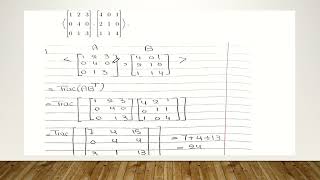 ⟨ [1 2 3; 0 4 0; 0 1 3], [4 0 1; 2 1 0; 1 1 4] ⟩.
1. A B
< [1 2 3; 0 4 0; 0 1 3], [4 0 1; 2 1 0; 1 1 4] >
= Trac(ABᵀ)
= Trac [ [1 2 3; 0 4 0; 0 1 3] [4 2 1; 0 1 1; 1 0 4] ]
= Trac [ [7 4 15; 0 4 4; 3 1 13] ] = 7+4+13
= 24